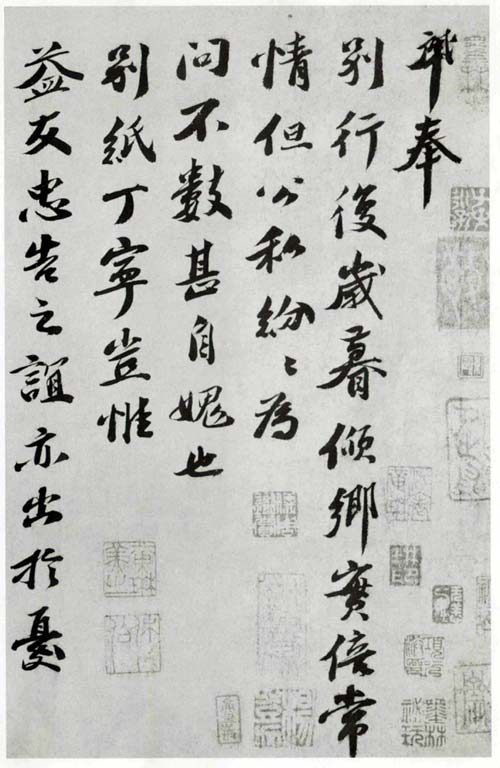 奉
別行後歲暮傾鄉實倍常
情但公私紛〻為
問不數甚自媿也
別紙丁寧豈惟
益友忠告之誼亦出於憂
墨林秘玩